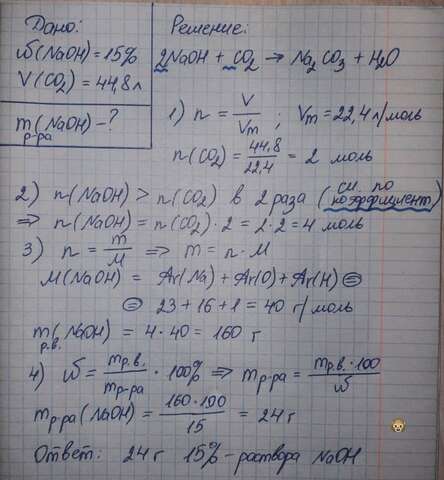 Дано:
ω(NaOH)=15%
V(CO₂)=44,8 л
m р-ра (NaOH) – ?
Решение:
2NaOH + CO₂ → Na₂CO₃ + H₂O
1) n = V/Vm ; Vm = 22,4 л/моль
n(CO₂) = 44,8/22,4 = 2 моль
2) n(NaOH) > n(CO₂) в 2 раза (см. по коэффициент)
⇒ n(NaOH) = n(CO₂)·2 = 2·2 = 4 моль
3) n = m/M ⇒ m = n·M
M(NaOH) = Ar(Na) + Ar(O) + Ar(H) =
= 23 + 16 + 1 = 40 г/моль
m р.в. (NaOH) = 4·40 = 160 г
4) ω = m р.в./m р-ра · 100% ⇒ m р-ра = m р.в.·100/ω
m р-ра (NaOH) = 160·100/15 = 24 г
Ответ: 24 г 15% - раствора NaOH